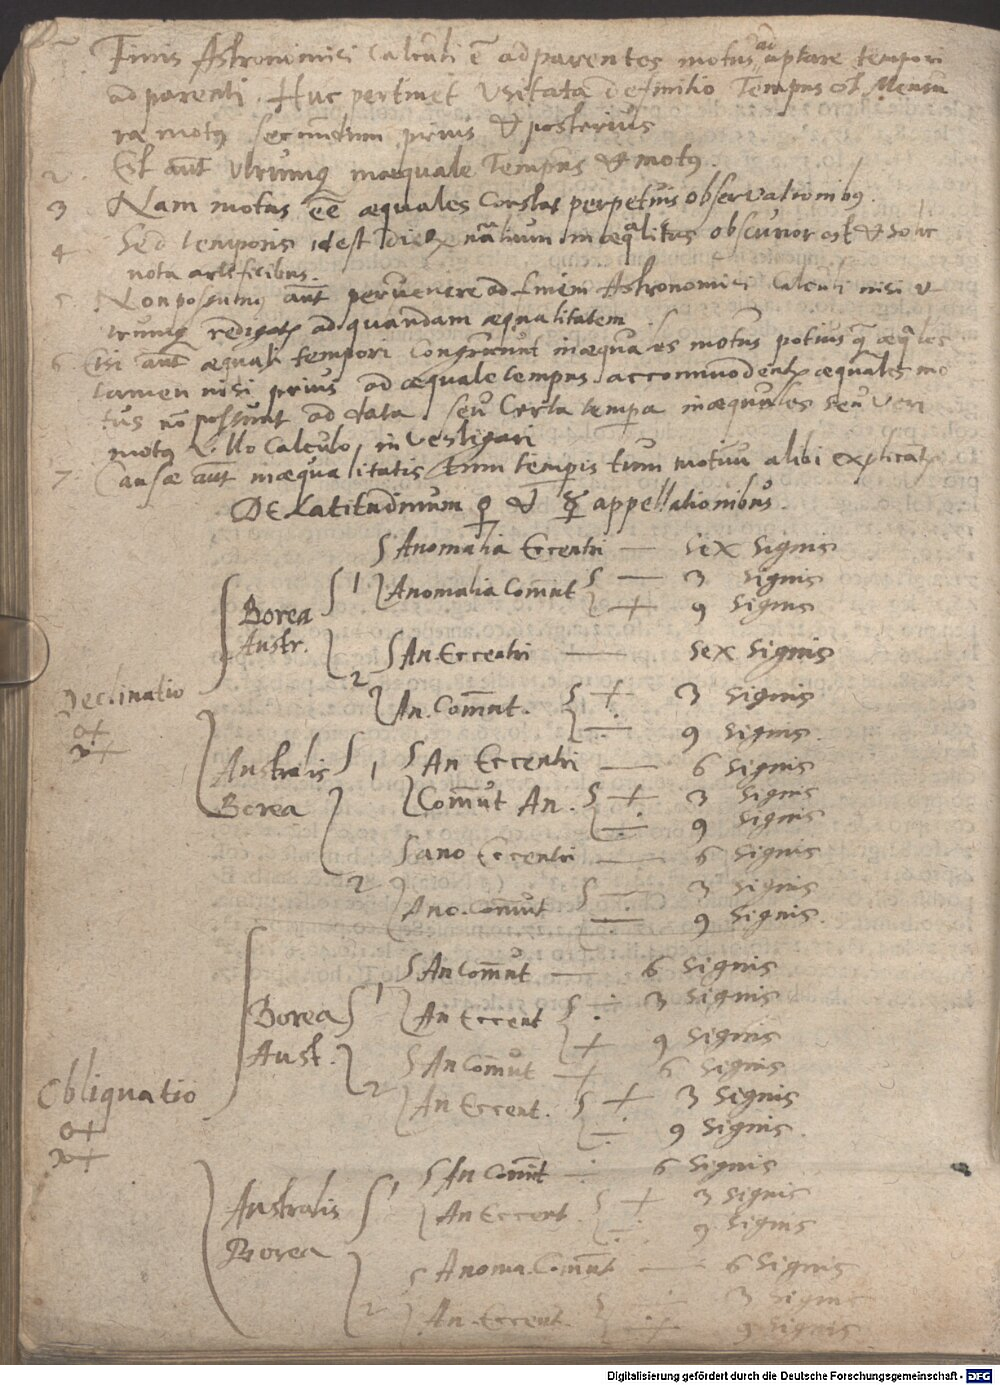 Finis Astronomici Calculi ē adparentes motus adaptare tempori
adparenti. Huc pertinet Usitata definitio Tempus est Mensu
ra motus secundum prius et posterius
2. Est aūt utrumq inaequale Tempus et motus.
3 Nam motus eē aequales Constat perpetuis observationibus.
4 Sed temporis idest dierum nālium inaeqlitas obscurior est et solis
nota artificibus.
5. Non possumus aūt pervenire ad finem Astronomici Calculi nisi u
trumq redigatur ad quandam aequalitatem.
6 Etsi aūt aequali tempori Congruunt inaequales motus potius q aeqles
tamen nisi prius ad aequale tempus accommodentur aequales mo
tus nō possunt ad data seu Certa tempora inaequales seu veri
motus Ullo Calculo investigari
7. Causae aūt inaequalitatis tum temporis tum motuum alibi explicantur
DE Latitudinum ♀ et ☿ appellationibus.
Anomalia Eccentri — sex signis
Borea 1 Anomalia Com̄ut — 3 signis
+ 9 signis
Austr. An. Eccentri — sex signis
2
Declinatio An. Com̄ut. + 3 signis
÷ 9 signis.
Australis 1 An Eccentri — 6 signis
Borea Com̄ut An. + 3 signis
÷ 9 signis
ano Eccentri — 6 signis
2 Ano. Com̄ut — 3 signis
— 9 signis.
An Com̄ut — 6 signis
Borea 1 An Eccent ÷ 3 signis
+ 9 signis
Aust. An Com̄ut + 6 signis
Obliquatio 2 An Eccent. + 3 signis
÷ 9 signis.
An Com̄ut ÷ 6 signis
Australis 1 An Eccent. + 3 signis
÷ 9 signis
Borea Anoma. Com̄ut — 6 signis
2 An. Eccent. ÷ 3 signis
+ 9 signis
Digitalisierung gefördert durch die Deutsche Forschungsgemeinschaft - DFG